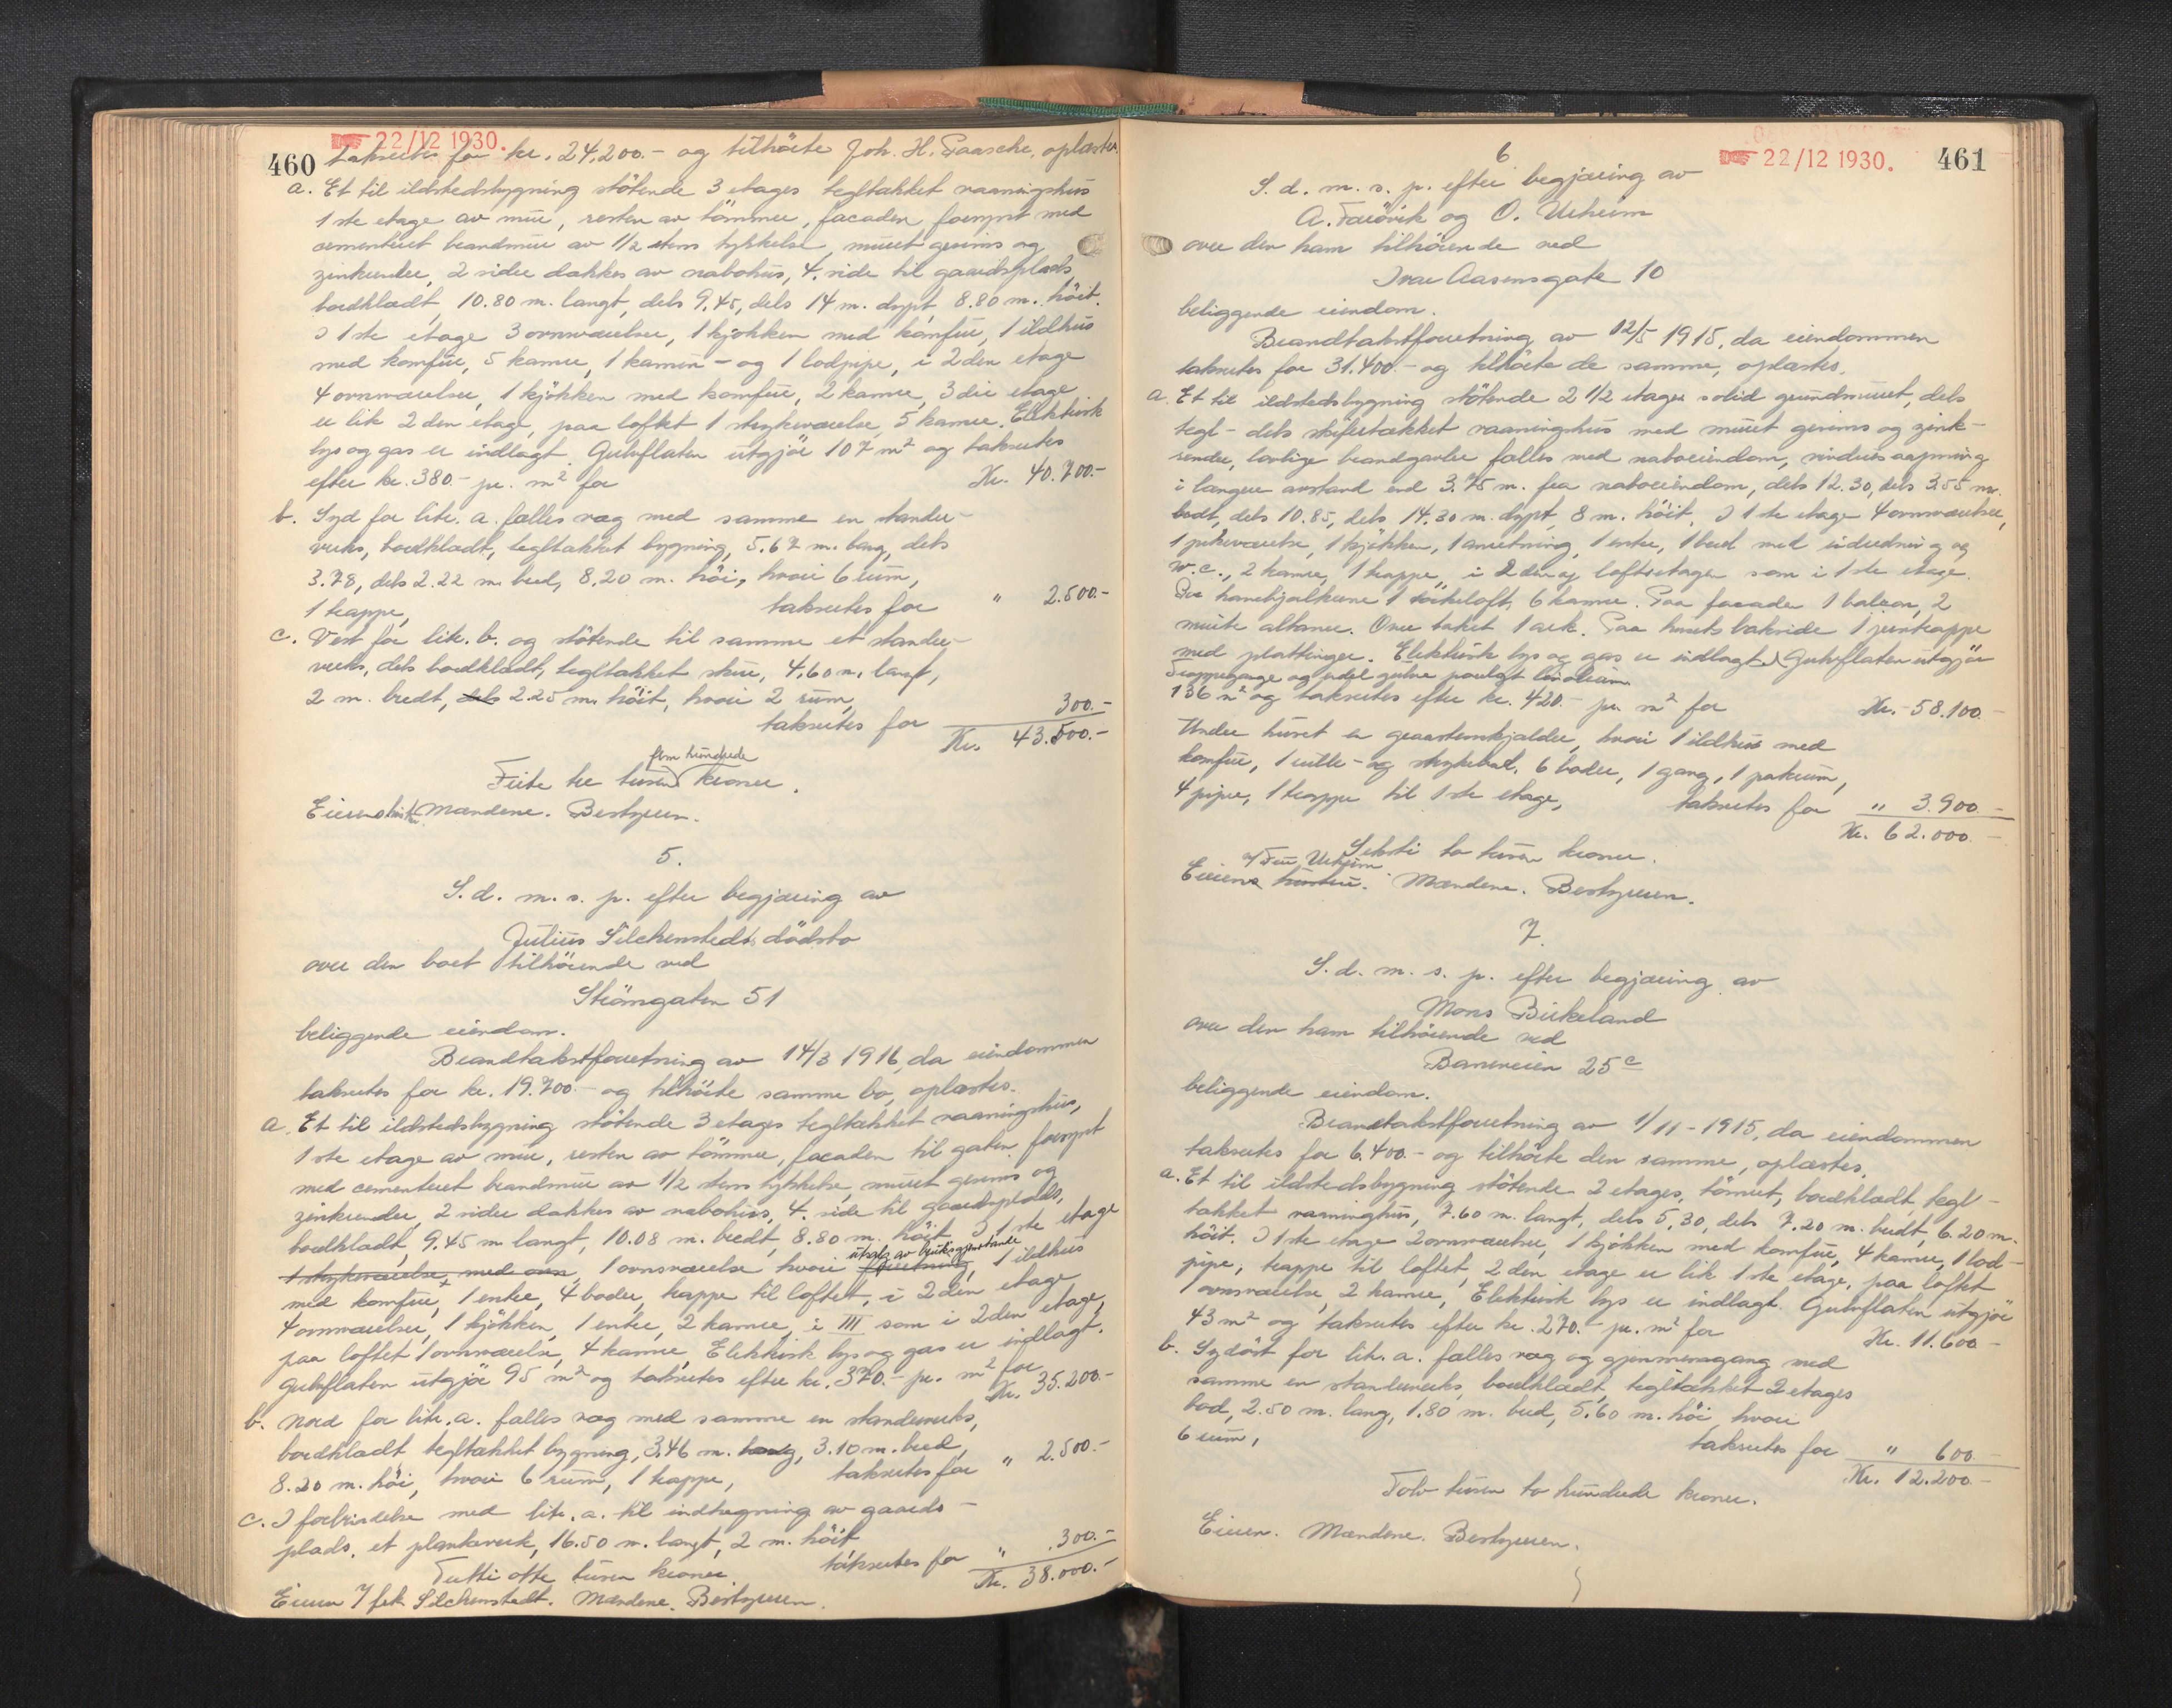 22/12 1930.
460 takseertes for kr. 24.200.- og tilhörte Joh. H. Paasche, oplæstes.
a. Et til ildstedsbygning stötende 3 etages tegltækket vaaningshus
1ste etage av mur, resten av tömmer, facaden forsynt med
cementeret brandmur av 1/2 stens tykkelse, muret gesims og
zinkrender, 2 sider dækkes av nabohus, 4. side til gaardsplads,
bordklædt, 10.80 m. langt, dels 9.45, dels 14 m. dypt, 8.80 m. höit.
I 1ste etage 3 ovnsværelser, 1 kjökken med komfur, 1 ildhus
med komfur, 5 kamre, 1 kamin- og 1 lodpipe, i 2den etage
4 ovnsværelser, 1 kjökken med komfur, 2 kamre, 3die etage
er lik 2den etage, paa loftet 1 strykeværelse, 5 kamre. Elektrisk
lys og gas er indlagt. Gulvflaten utgjör 107 m² og takseres
efter kr. 380.- pr. m² for Kr. 40.700.-
b. Syd for litr. a. fælles væg med samme en stander-
verks, bordklædt, tegltækket bygning, 5.67 m. lang, dels
3.78, dels 2.22 m. bred, 8.20 m. höi, hvori 6 rum,
1 trappe, takseres for " 2.500.-
c. Vest for litr. b. og stötende til samme et stander-
verks, dels bordklædt, tegltækket skur, 4.60 m. langt,
2 m. bredt, dels 2.25 m. höit, hvori 2 rum,
takseres for 300.-
Kr. 43.500.-
fem hundrede
Förti tre tusen kroner.
Eierens Mændene. Bestyreren.
5.
S. d. m. s. p. efter begjæring av
Julius Silchenstedts dödsbo
over den boet tilhörende ved
Strömgaten 51
beliggende eiendom.
Brandtakstforretning av 14/3 1916, da eiendommen
takseertes for kr. 19.700.- og tilhörte samme bo, oplæstes.
a. Et til ildstedsbygning stötende 3 etages tegltækket vaaningshus,
1ste etage av mur, resten av tömmer, facaden til gaten forsynt
med cementeret brandmur av 1/2 stens tykkelse, muret gesims og
zinkrender, 2 sider dækkes av nabohus, 4. side til gaardsplads,
bordklædt, 9.45 m. langt, 10.08 m. bredt, 8.80 m. höit. I 1ste etage
utsalg av bruksgjenstande
1 strykeværelse, med ovn, 1 ovnsværelse hvori forretning, 1 ildhus
med komfur, 1 entre, 4 boder, trappe til loftet, i 2den etage
4 ovnsværelser, 1 kjökken, 1 entre, 2 kamre, i III som i 2den etage,
paa loftet 1 ovnsværelse, 4 kamre. Elektrisk lys og gas er indlagt.
Gulvflaten utgjör 95 m² og takseres efter kr. 370.- pr. m² for
Kr. 35.200.-
b. Nord for litr. a. fælles væg med samme en standerverks,
bordklædt, tegltækket bygning, 3.46 m. lang, 3.10 m. bred,
8.20 m. höi, hvori 6 rum, 1 trappe, takseres for " 2.500.-
c. I forbindelse med litr. a. til indhegning av gaards-
plads, et plankeverk, 16.50 m. langt, 2 m. höit,
takseres for " 300.-
Kr. 38.000.-
Tretti otte tusen kroner.
Eieren v/ frk Silchenstedt. Mændene. Bestyreren.
22/12 1930. 461
6
S. d. m. s. p. efter begjæring av
A. Farövik og O. Urheim
over den ham tilhörende ved
Ivar Aasensgate 10
beliggende eiendom.
Brandtakstforretning av 12/5 1915, da eiendommen
takseertes for 31.400.- og tilhörte de samme, oplæstes.
a. Et til ildstedsbygning stötende 2 1/2 etages solid grundmuret, dels
tegl- dels skifertækket vaaningshus med muret gesims og zink-
render, lovlige brandgavler fælles med naboeiendom, vindusaapning
i længere avstand end 3.75 m. fra naboeiendom, dels 12.30, dels 3.55 m.
bredt, dels 10.85, dels 14.30 m. dypt, 8 m. höit. I 1ste etage 4 ovnsværelser,
1 pikeværelse, 1 kjökken, 1 anretning, 1 entre, 1 bad med indredning og
w.c., 2 kamre, 1 trappe, i 2den og loftsetagen som i 1ste etage.
Over hanebjælkerne 1 törkeloft, 6 kamre. Paa facaden 1 balcon, 2
murte altaner. Over taket 1 ark. Paa husets bakside 1 jerntrappe
med plattinger. Elektrisk lys og gas er indlagt. Gulvflaten utgjör
Trappegange og endel gulve paalagt linoleum
136 m² og takseres efter kr. 420.- pr. m² for Kr. 58.100.-
Under huset er graastenskjælder, hvori 1 ildhus med
komfur, 1 rulle- og strykebod, 6 boder, 1 gang, 1 pakrum,
4 piper, 1 trappe til 1ste etage, takseres for " 3.900.-
Kr. 62.000.-
Seksti to tusen kroner.
v/ Fru Urheim
Eierens hustru. Mændene. Bestyreren.
7.
S. d. m. s. p. efter begjæring av
Mons Birkeland
over den ham tilhörende ved
Baneveien 25 c
beliggende eiendom.
Brandtakstforretning av 1/11-1915, da eiendommen
takseertes for 6.400.- og tilhörte den samme, oplæstes.
a. Et til ildstedsbygning stötende 2 etages, tömret, bordklædt, tegl-
tækket vaaningshus, 7.60 m. langt, dels 5,30, dels 7.20 m. bredt, 6.20 m.
höit. I 1ste etage 2 ovnsværelser, 1 kjökken med komfur, 4 kamre, 1 lod-
pipe, trappe til loftet, 2den etage er lik 1ste etage, paa loftet
1 ovnsværelse, 2 kamre, Elektrisk lys er indlagt. Gulvflaten utgjör
43 m² og takseres efter kr. 270.- pr. m² for Kr. 11.600.-
b. Sydöst for litr. a. fælles væg og gjennemgang med
samme en standerverks, bordklædt, tegltækket 2 etages
bod, 2.50 m. lang, 1.80 m. bred, 5.60 m. höi, hvori
6 rum, takseres for " 600.-
Kr. 12.200.-
Tolv tusen to hundrede kroner.
Eieren. Mændene. Bestyreren.